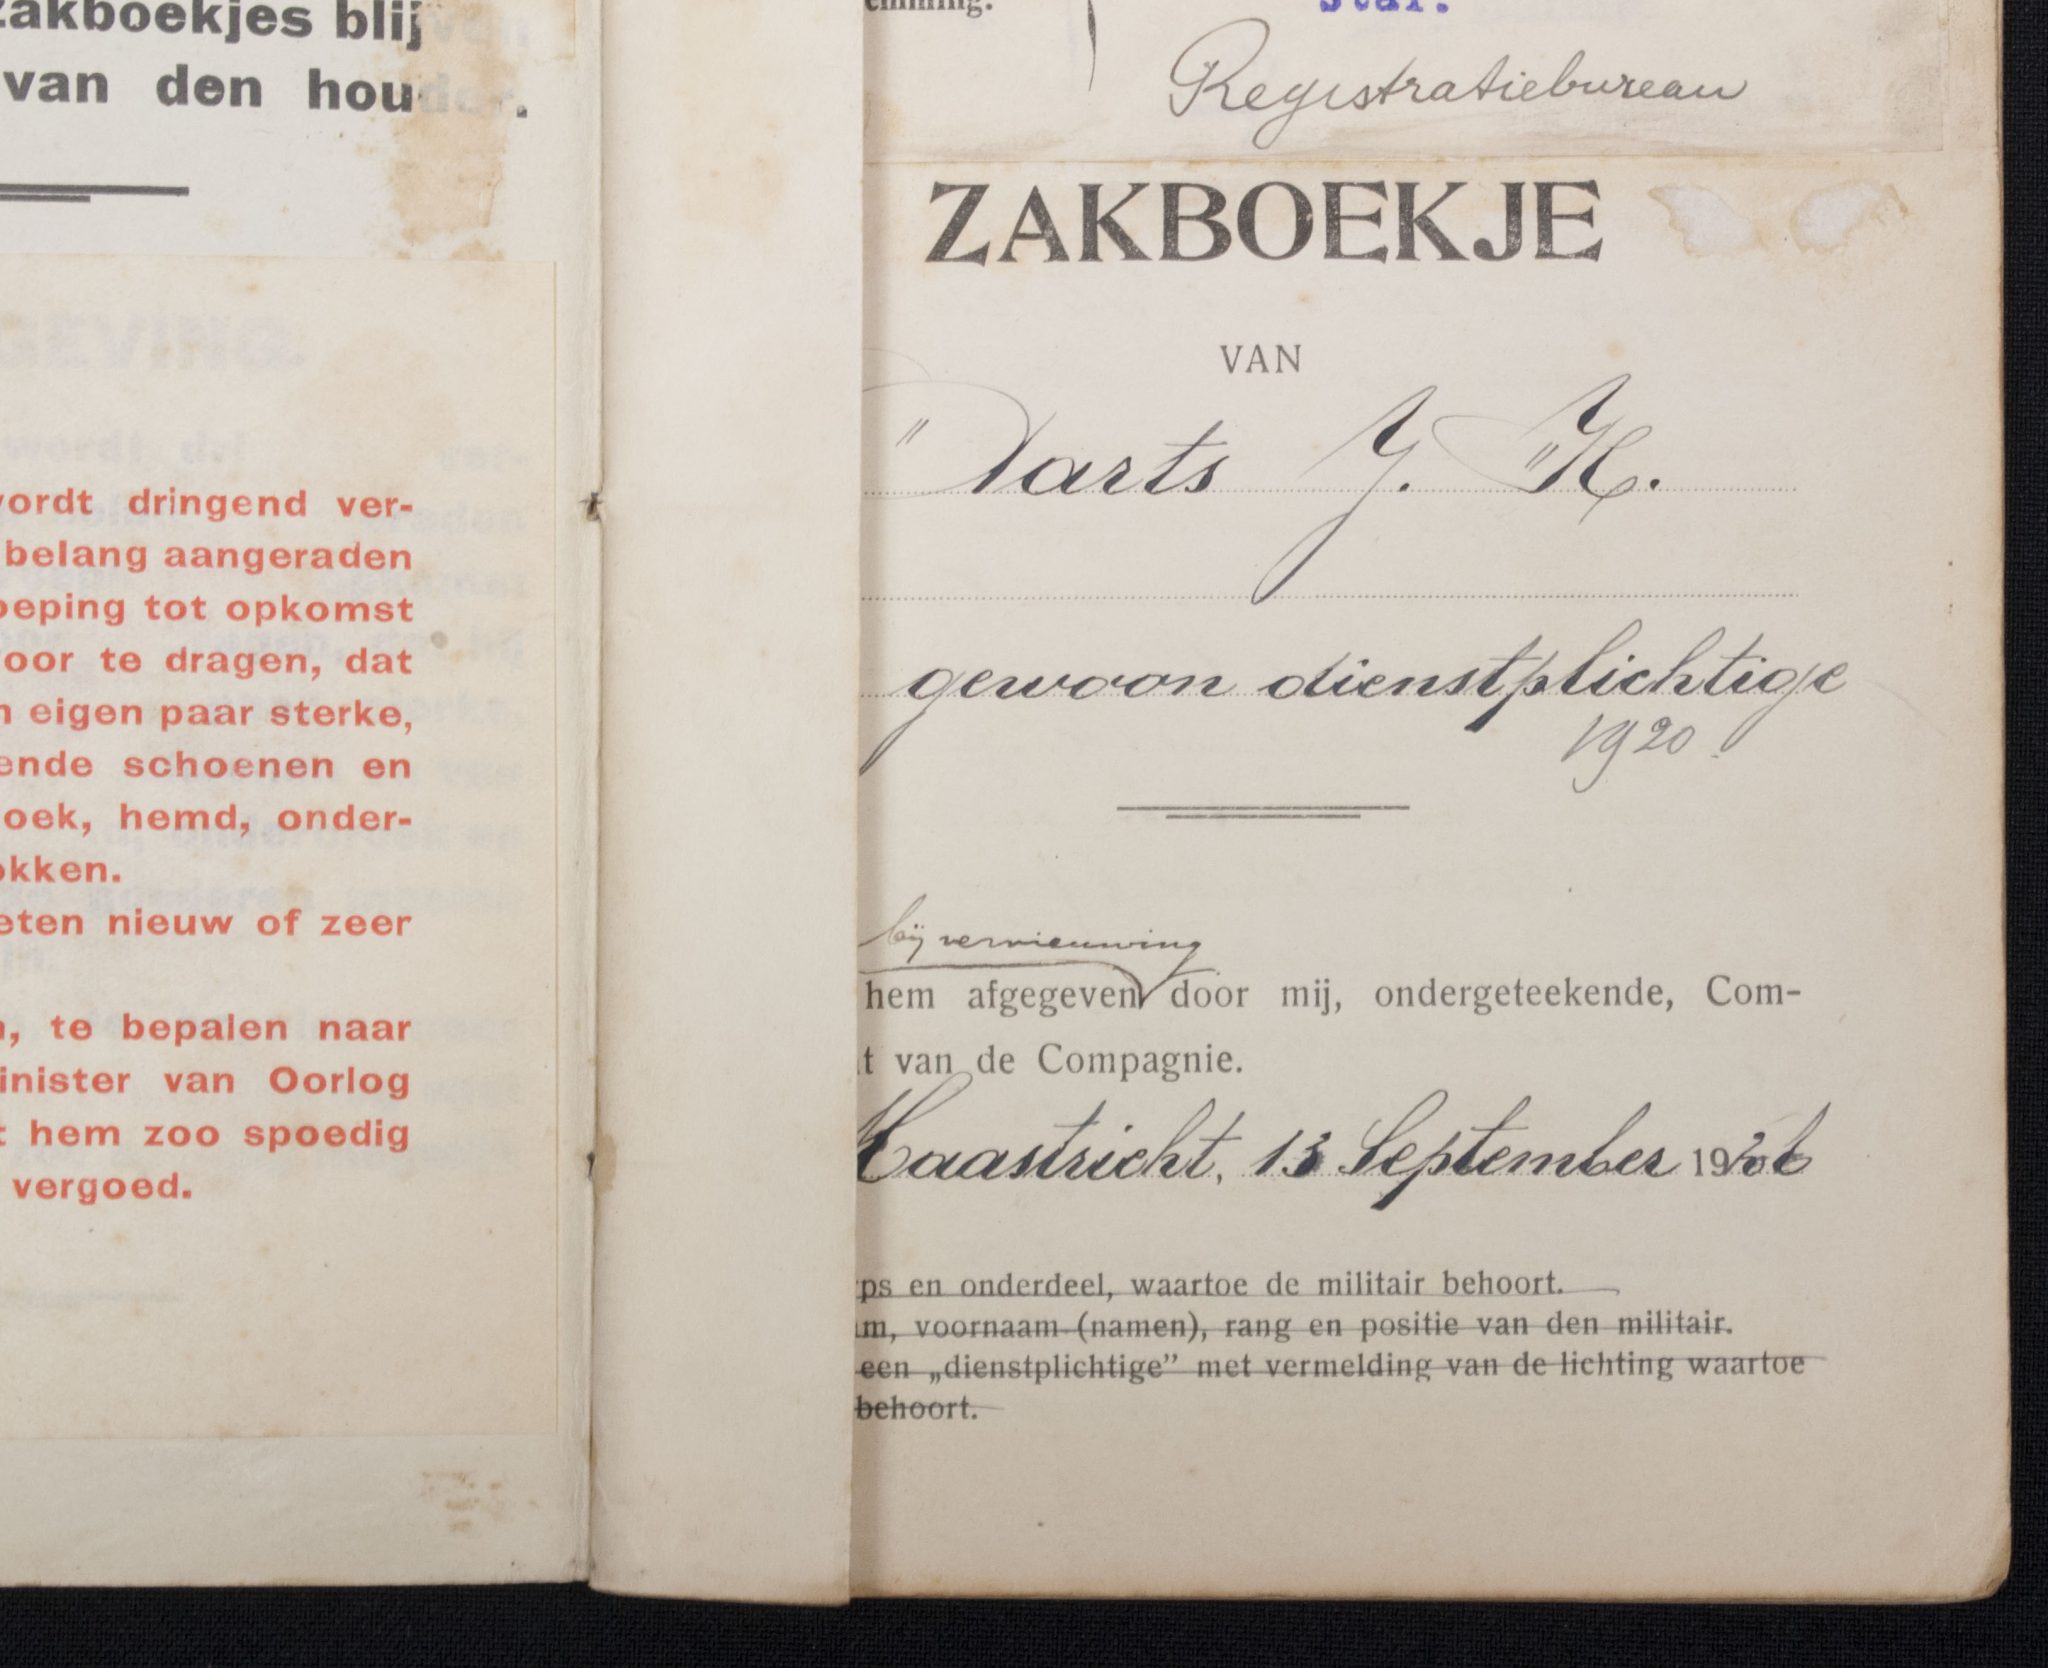 zakboekjes blijven
van den houder.
GEVING.
wordt dringend ver-
belang aangeraden
oeping tot opkomst
oor te dragen, dat
n eigen paar sterke,
ende schoenen en
oek, hemd, onder-
okken.
eten nieuw of zeer
n, te bepalen naar
inister van Oorlog
t hem zoo spoedig
vergoed.
Staf.
Registratiebureau
ZAKBOEKJE
VAN
"Darts J. "H.
gewoon dienstplichtige
1920.
bij vernieuwing
hem afgegeven door mij, ondergeteekende, Com-
t van de Compagnie.
Maastricht, 13 September 1926
ps en onderdeel, waartoe de militair behoort.
m, voornaam (namen), rang en positie van den militair.
een „dienstplichtige” met vermelding van de lichting waartoe
behoort.